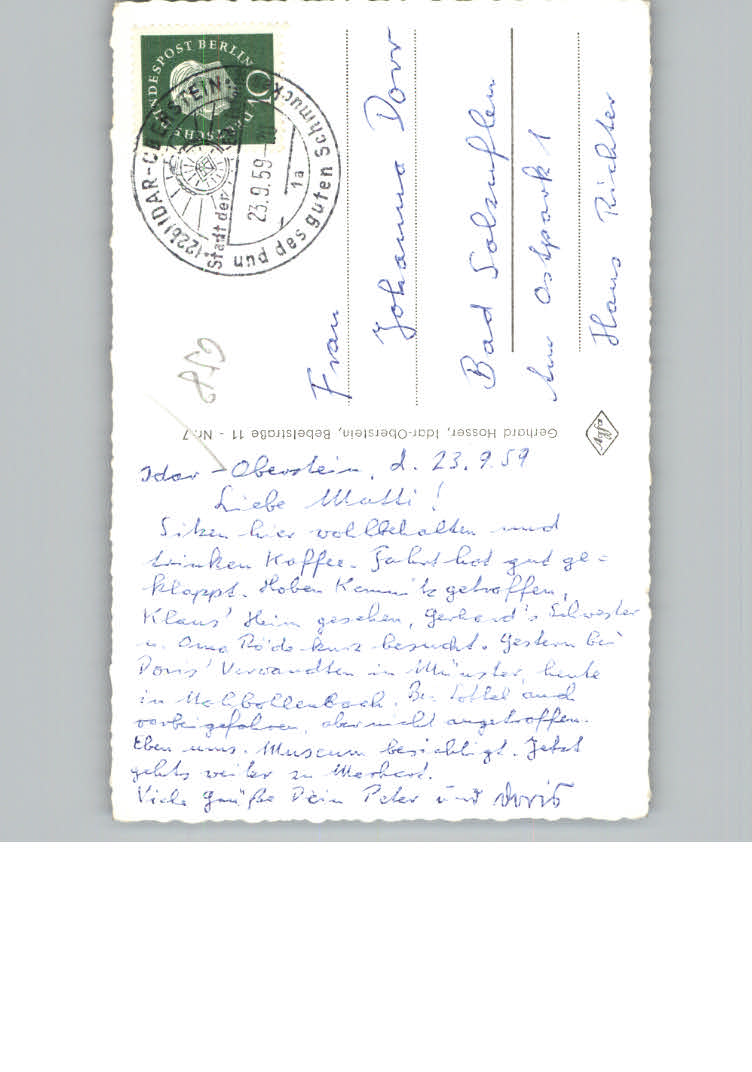 DEUTSCHE BUNDESPOST BERLIN
(22b) IDAR-OBERSTEIN
Stadt der
und des guten Schmucks
23.9.59
1a
Frau
Johanna Dorr
Bad Salzuflen
Am Ostpark 1
Haus Richter
Gerhard Hosser, Idar-Oberstein, Bebelstraße 11 - Nr. 7
Agfa
Idar-Oberstein, d. 23.9.59
Liebe Mutti!
Sitzen hier wohlbehalten und
trinken Kaffee. Fahrt hat gut ge=
klappt. Haben getroffen,
Klaus' Heim gesehen, Gerhard's Silvester
u. Oma kurz besucht. Gestern bei
Doris' Verwandten in Münster, heute
in Mahbollenbach. Bei auch
vorbeigefahren, aber nicht angetroffen.
Eben uns. Museum besichtigt. Jetzt
gehts weiter zu
Viele Grüße Dein Peter und Doris